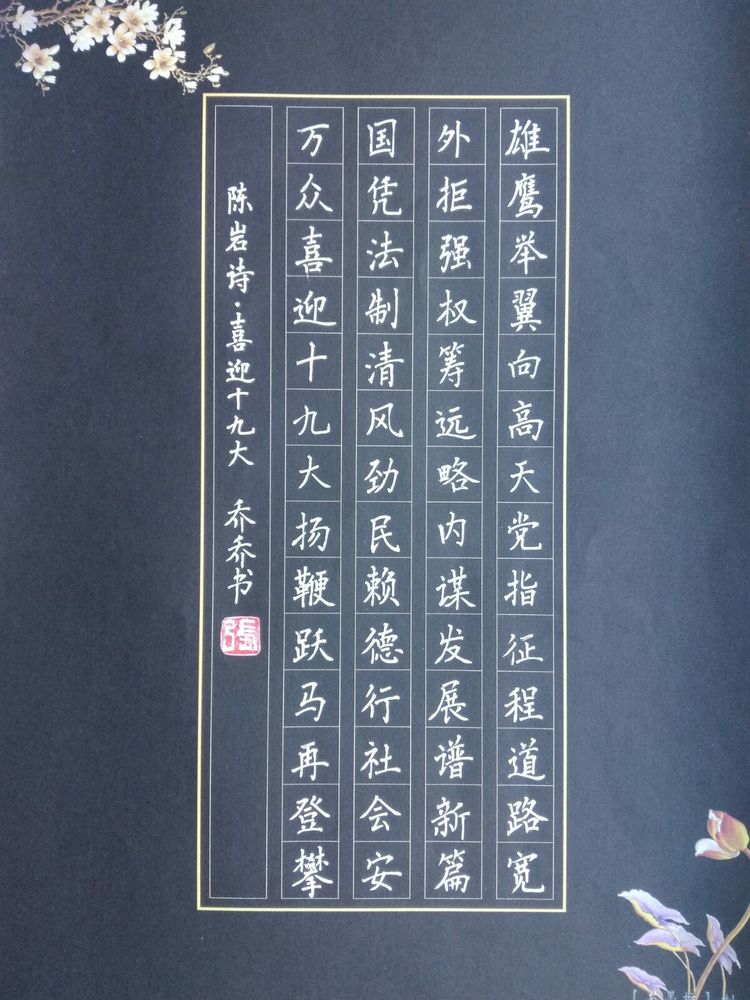 雄鹰举翼向高天党指征程道路宽
外拒强权筹远略内谋发展谱新篇
国凭法制清风劲民赖德行社会安
万众喜迎十九大扬鞭跃马再登攀
陈岩诗·喜迎十九大 乔乔书
張